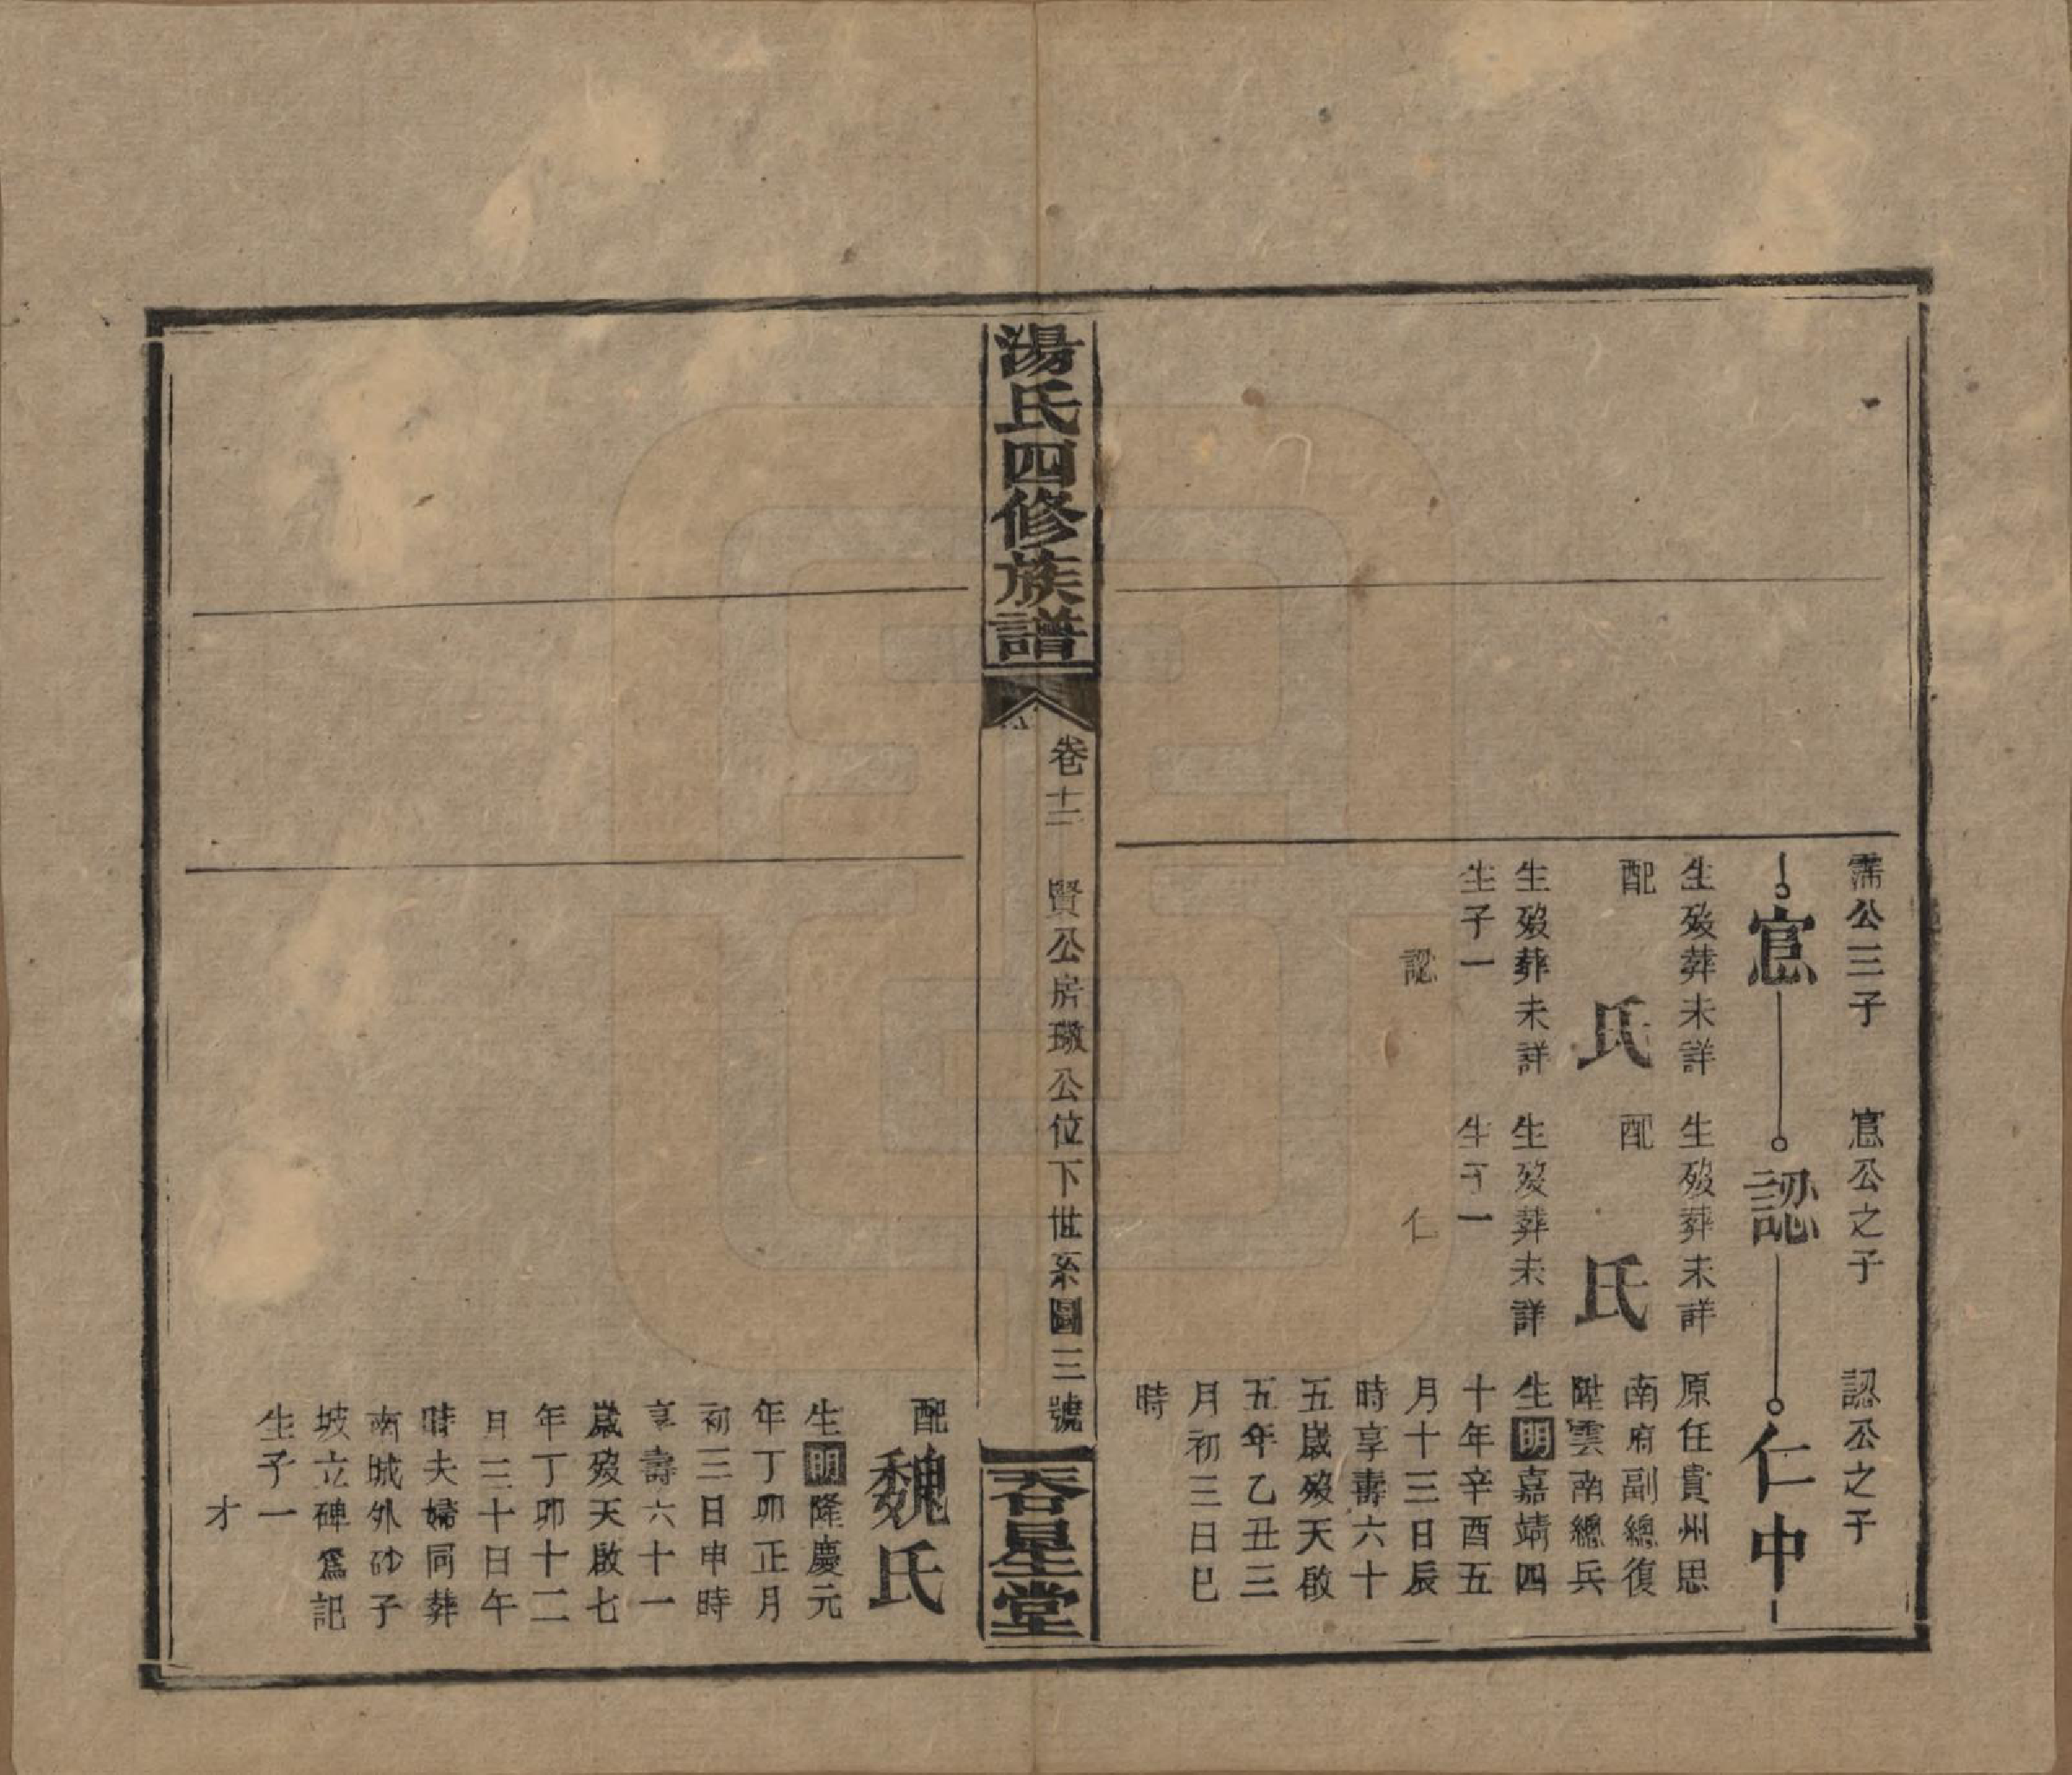 霈公三子
官
生歿葬未詳
配
氏
生歿葬未詳
生子一
認
官公之子
認
生歿葬未詳
配
氏
生歿葬未詳
生子一
仁
認公之子
仁中
原任貴州思
南府副總復
陞雲南總兵
生明嘉靖四
十年辛酉五
月十三日辰
時享壽六十
五歲歿天啟
五年乙丑三
月初三日巳
時
湯氏四修族譜
卷十二
賢公房璥公位下世系圖三號
聚星堂
配
魏氏
生明隆慶元
年丁卯正月
初三日申時
享壽六十一
歲歿天啟七
年丁卯十二
月二十日午
時夫婦同葬
南城外砂子
坡立碑爲記
生子一
才